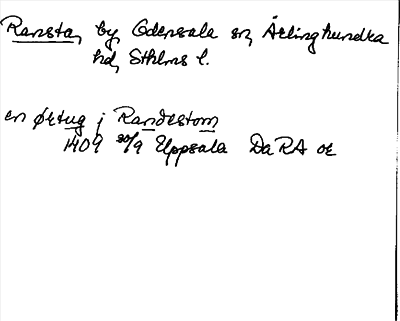 Ransta, by Odensala sn, Ärlinghundra
hd, Sthlms l.
en ørtug j Randestom
1409 30/9 Uppsala DaRA or